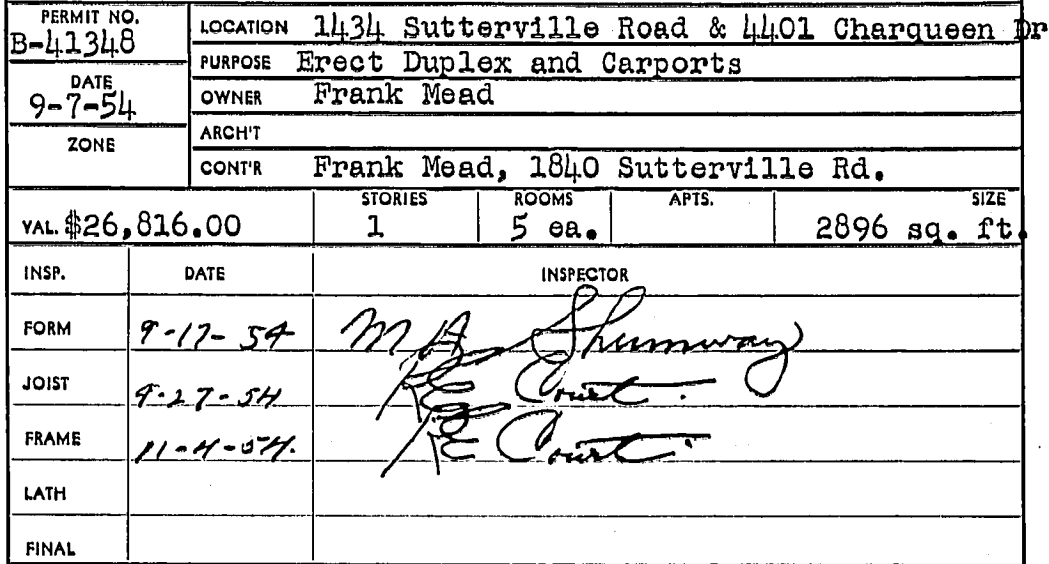 PERMIT NO.
B-41348
DATE
9-7-54
ZONE
LOCATION 1434 Sutterville Road & 4401 Charqueen Dr
PURPOSE Erect Duplex and Carports
OWNER Frank Mead
ARCH'T
CONT'R Frank Mead, 1840 Sutterville Rd.
VAL. $26,816.00 STORIES 1 ROOMS 5 ea. APTS. SIZE 2896 sq. ft.
INSP. DATE INSPECTOR
FORM 9-17-54 M A Shumway
JOIST 9-27-54 RE Court.
FRAME 11-4-54. RE Court.
LATH
FINAL